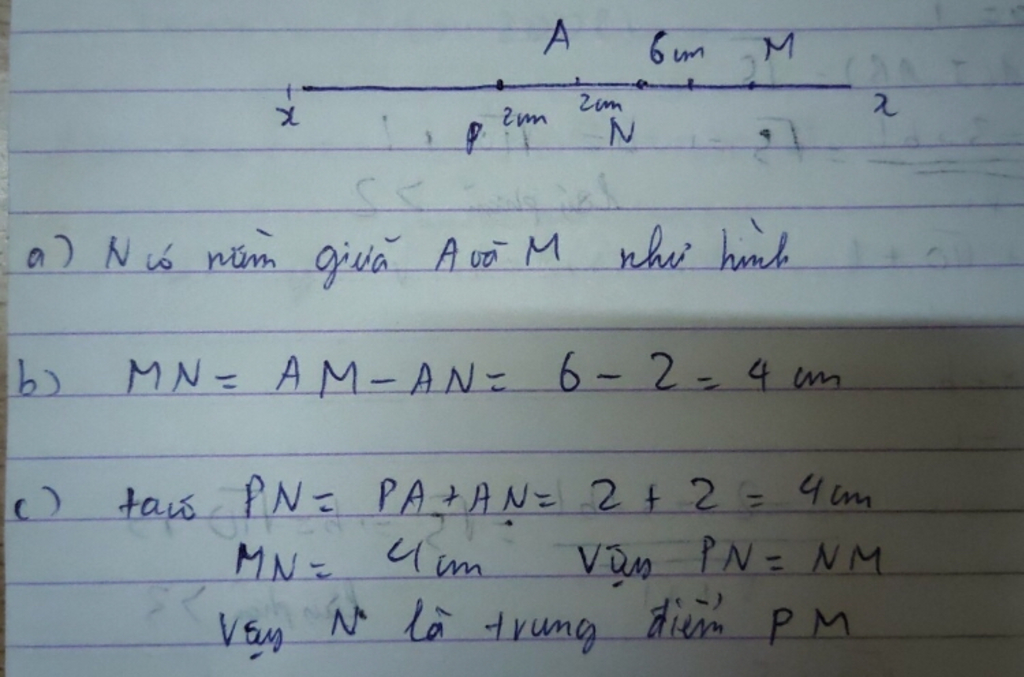 A 6cm M
x 2cm 2cm x
P N
a) N có nằm giữa A và M như hình
b) MN = AM - AN = 6 - 2 = 4 cm
c) ta có PN = PA + AN = 2 + 2 = 4cm
MN = 4cm Vậy PN = NM
Vậy N là trung điểm PM